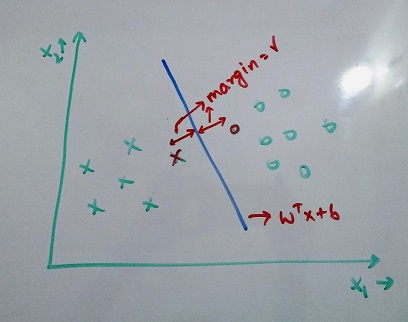 x₂↑
margin = r
wᵀx+b
x₁ →